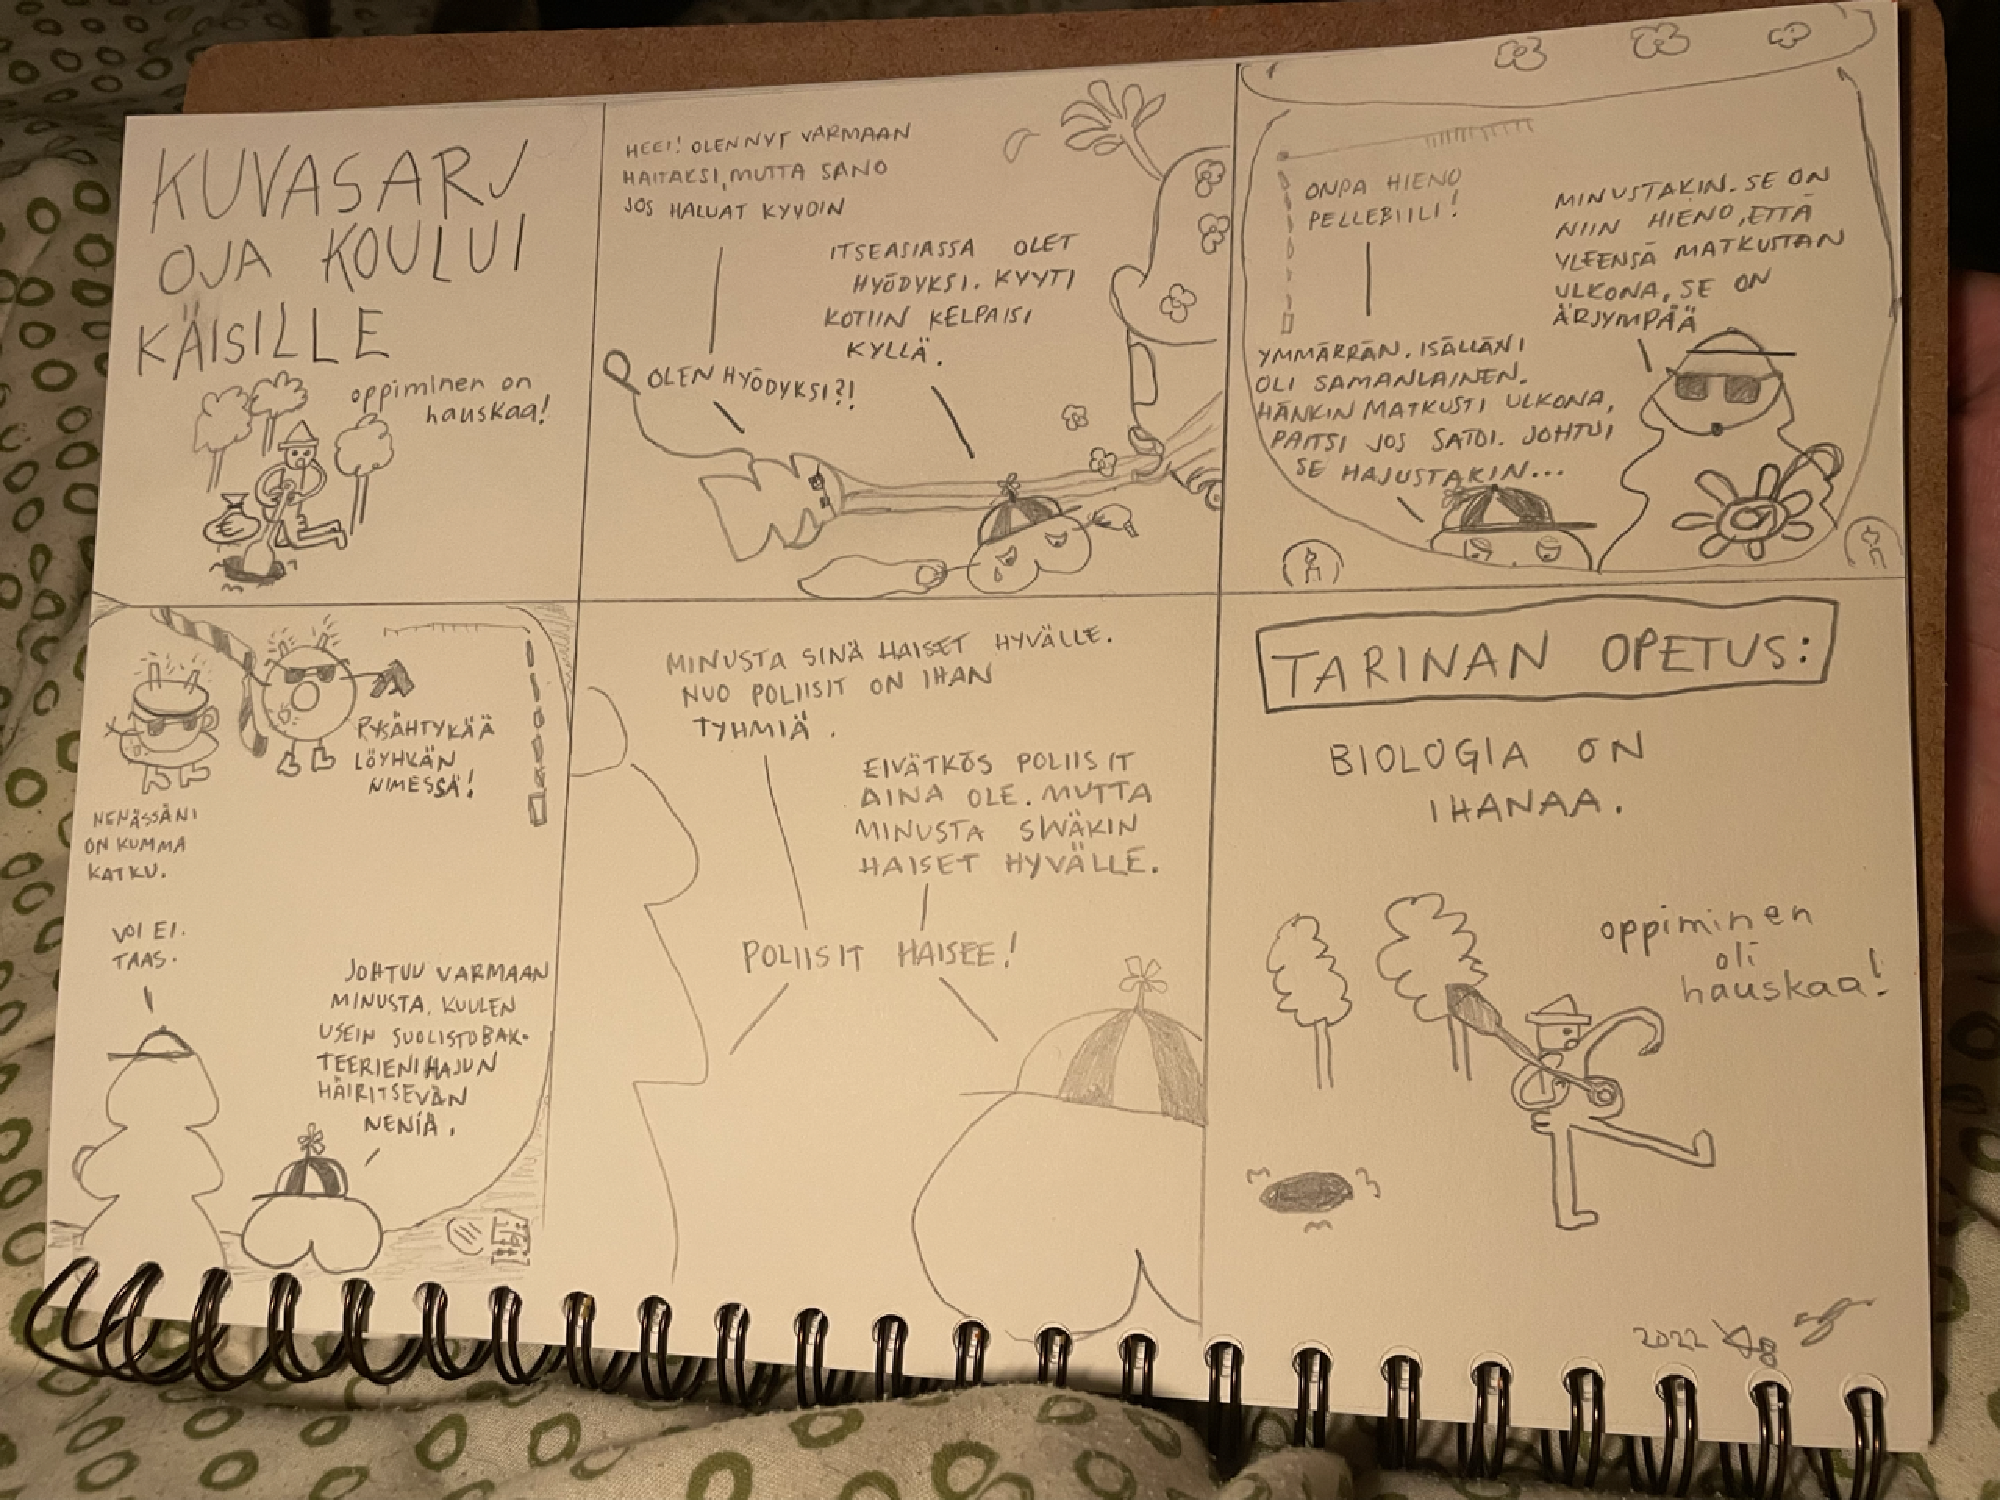 KUVASARJ
OJA KOULUI
KÄISILLE
oppiminen on
hauskaa!
HEEI! OLEN NYT VARMAAN
HAITAKSI, MUTTA SANO
JOS HALUAT KYYDIN
ITSEASIASSA OLET
HYÖDYKSI. KYYTI
KOTIIN KELPAISI
KYLLÄ.
OLEN HYÖDYKSI?!
ONPA HIENO
PELLEBIILI!
MINUSTAKIN. SE ON
NIIN HIENO, ETTÄ
YLEENSÄ MATKUSTAN
ULKONA, SE ON
ÄRJYMPÄÄ
YMMÄRRÄN. ISÄLLÄNI
OLI SAMANLAINEN.
HÄNKIN MATKUSTI ULKONA,
PAITSI JOS SATOI. JOHTUI
SE HAJUSTAKIN...
PYSÄHTYKÄÄ
LÖYHKÄN
NIMESSÄ!
NENÄSSÄNI
ON KUMMA
KATKU.
VOI EI.
TAAS.
JOHTUU VARMAAN
MINUSTA. KUULEN
USEIN SUOLISTOBAK-
TEERIENI HAJUN
HÄIRITSEVÄN
NENIÄ.
MINUSTA SINÄ HAISET HYVÄLLE.
NUO POLIISIT ON IHAN
TYHMIÄ.
EIVÄTKÖS POLIISIT
AINA OLE. MUTTA
MINUSTA SINÄKIN
HAISET HYVÄLLE.
POLIISIT HAISEE!
TARINAN OPETUS:
BIOLOGIA ON
IHANAA.
oppiminen
oli
hauskaa!
2022